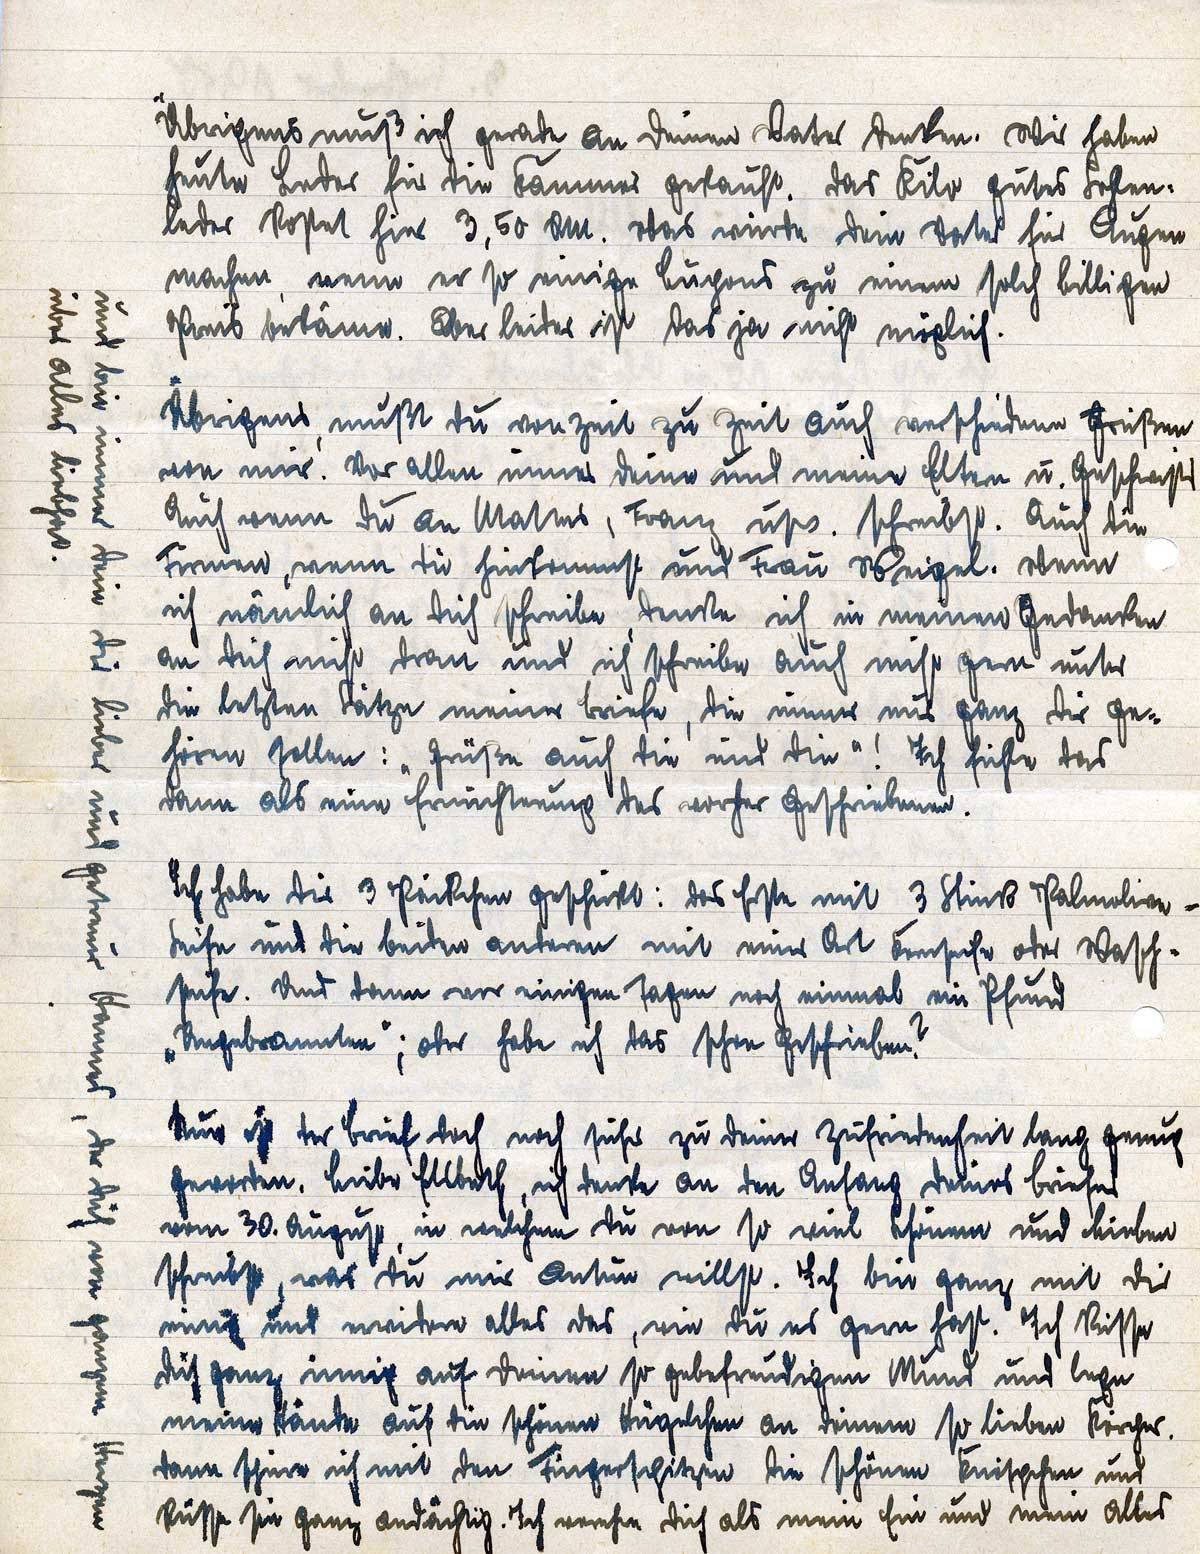 Übrigens muß ich gerade an Deinen Vater denken. Wir haben
heute Leder für die Kammer gekauft. Das Kilo gutes Sohlen-
leder kostet hier 3,50 RM. Was würde dein Vater für Augen
machen, wenn er so einige Cupons zu einem solch billigen
Preis bekäme. Aber leider ist das ja nicht möglich.
Übrigens, mußt du von Zeit zu Zeit auch verschiedene Grüßen
von mir. Vor allen immer deine und meine Eltern u. Geschwist
Auch wenn du an Franz usw. schreibst. Auch die
Firmen, wenn du hinkommst und Frau Weigel. Wenn
ich nämlich an dich schreibe, denke ich in meinen Gedanken
an dich nicht dran und ich schreibe auch nicht gern unter
die letzten Sätze meiner Briefe, die immer nur ganz dir ge-
hören sollen: „Grüße auch die und die"! Ich fühle das
dann als eine Ernüchterung des vorher Geschriebenen.
Ich habe dir 3 Päckchen geschickt: das Erste mit 3 Stück Palmolive-
Seife und die beiden anderen mit einer Art Kernseife oder Wasch-
seife. Und dann vor einigen Tagen noch einmal ein Pfund
„Ungebrannten"; oder habe ich das schon Geschrieben?
Nun ist der Brief doch noch sicher zu deiner Zufriedenheit lang genug
geworden. Liebe Elsbeth, ich denke an den Anfang deines Briefes
vom 30. August, in welchem du von so viel Schönem und Lieben
schreibst, was du mir Antun willst. Ich bin ganz mit dir
einig und erwidere alles das, wie du es gern hast. Ich küsse
dich ganz innig auf Deinen so gebefreudigen Mund und lege
meine Hände auf die schönen Hügelchen an deinem so lieben Körper.
Dann spüre ich mit den Fingerspitzen die schönen Knöspchen und
küsse sie ganz andächtig. Ich verehre dich als mein Ein und mein Alles
und bin immer dein dir lieber und getreuer Hannes, der dich von ganzem Herzen
über alles liebhat.